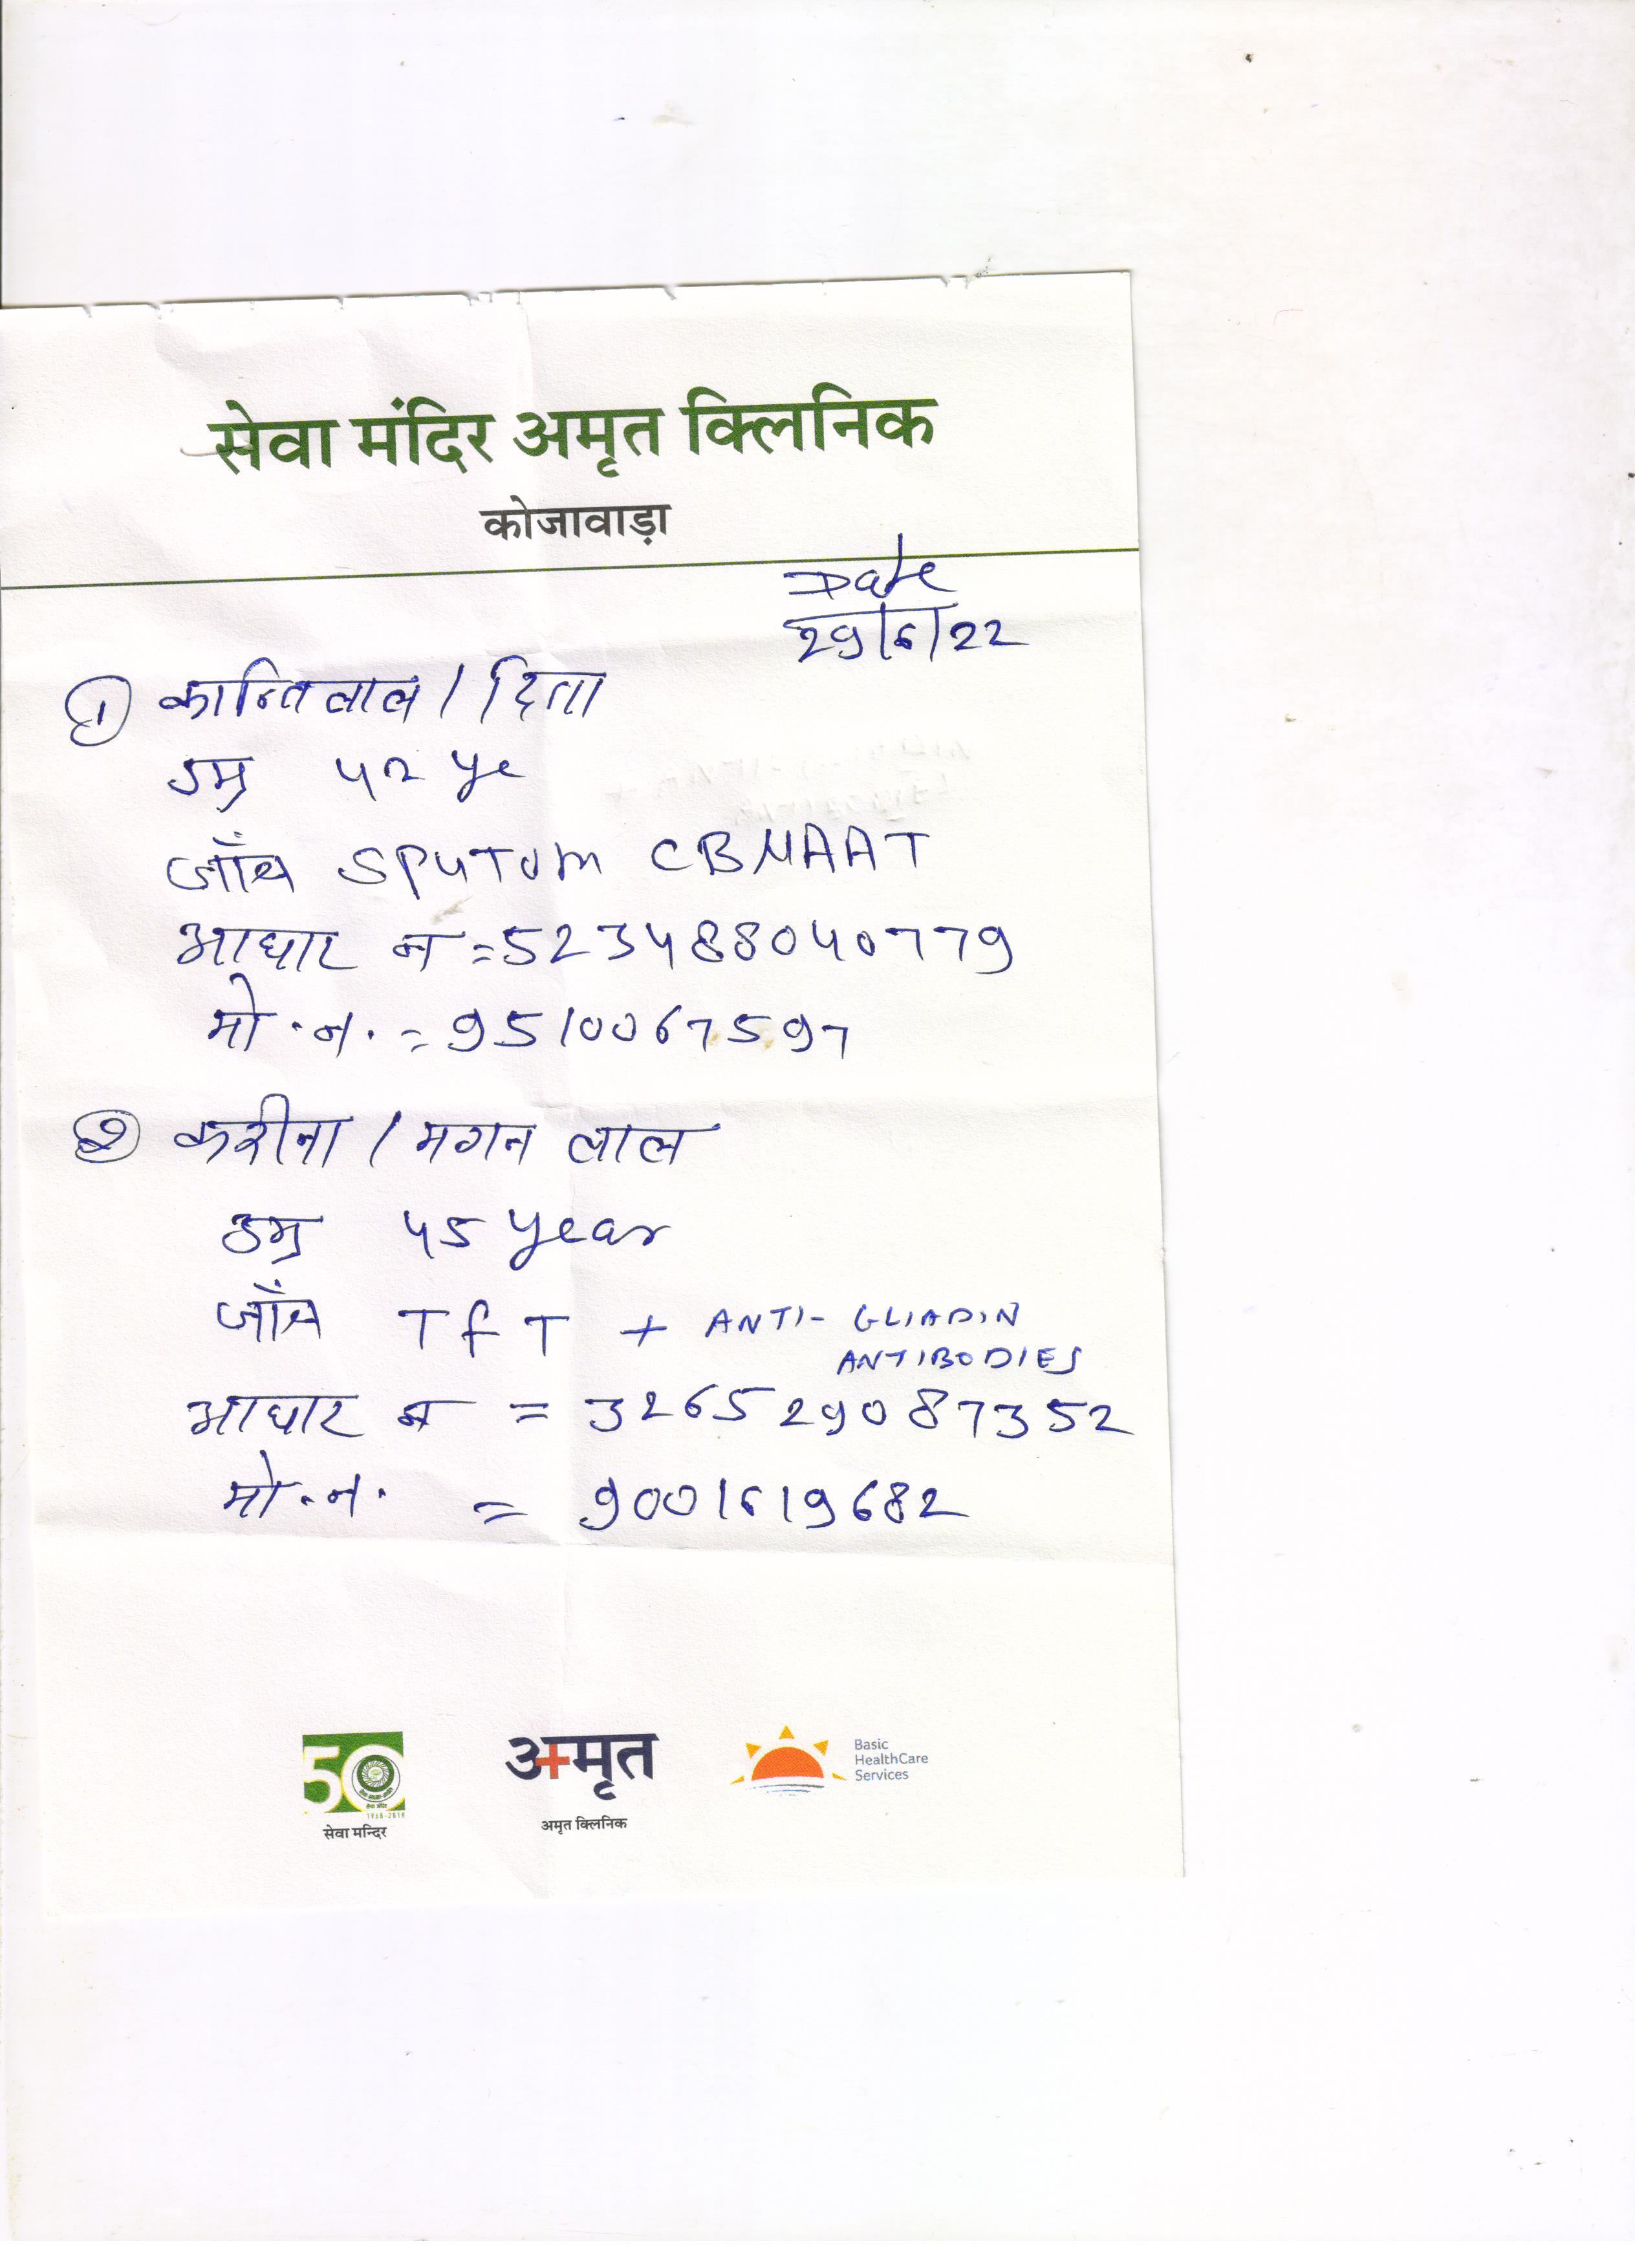 सेवा मंदिर अमृत क्लिनिक
कोजावाड़ा
Date
29/6/22
① कान्तिलाल / दिता
उम्र 42 ye
जाँच SPUTUM CBNAAT
आधार न = 523488040779
मो.न. = 9510067597
② करीना / मगन लाल
उम्र 45 year
जाँच TFT + ANTI-GLIADIN
ANTIBODIES
आधार न = 326529087352
मो.न. = 9001619682
50
1968-2018
सेवा मन्दिर
अमृत
अमृत क्लिनिक
Basic
HealthCare
Services